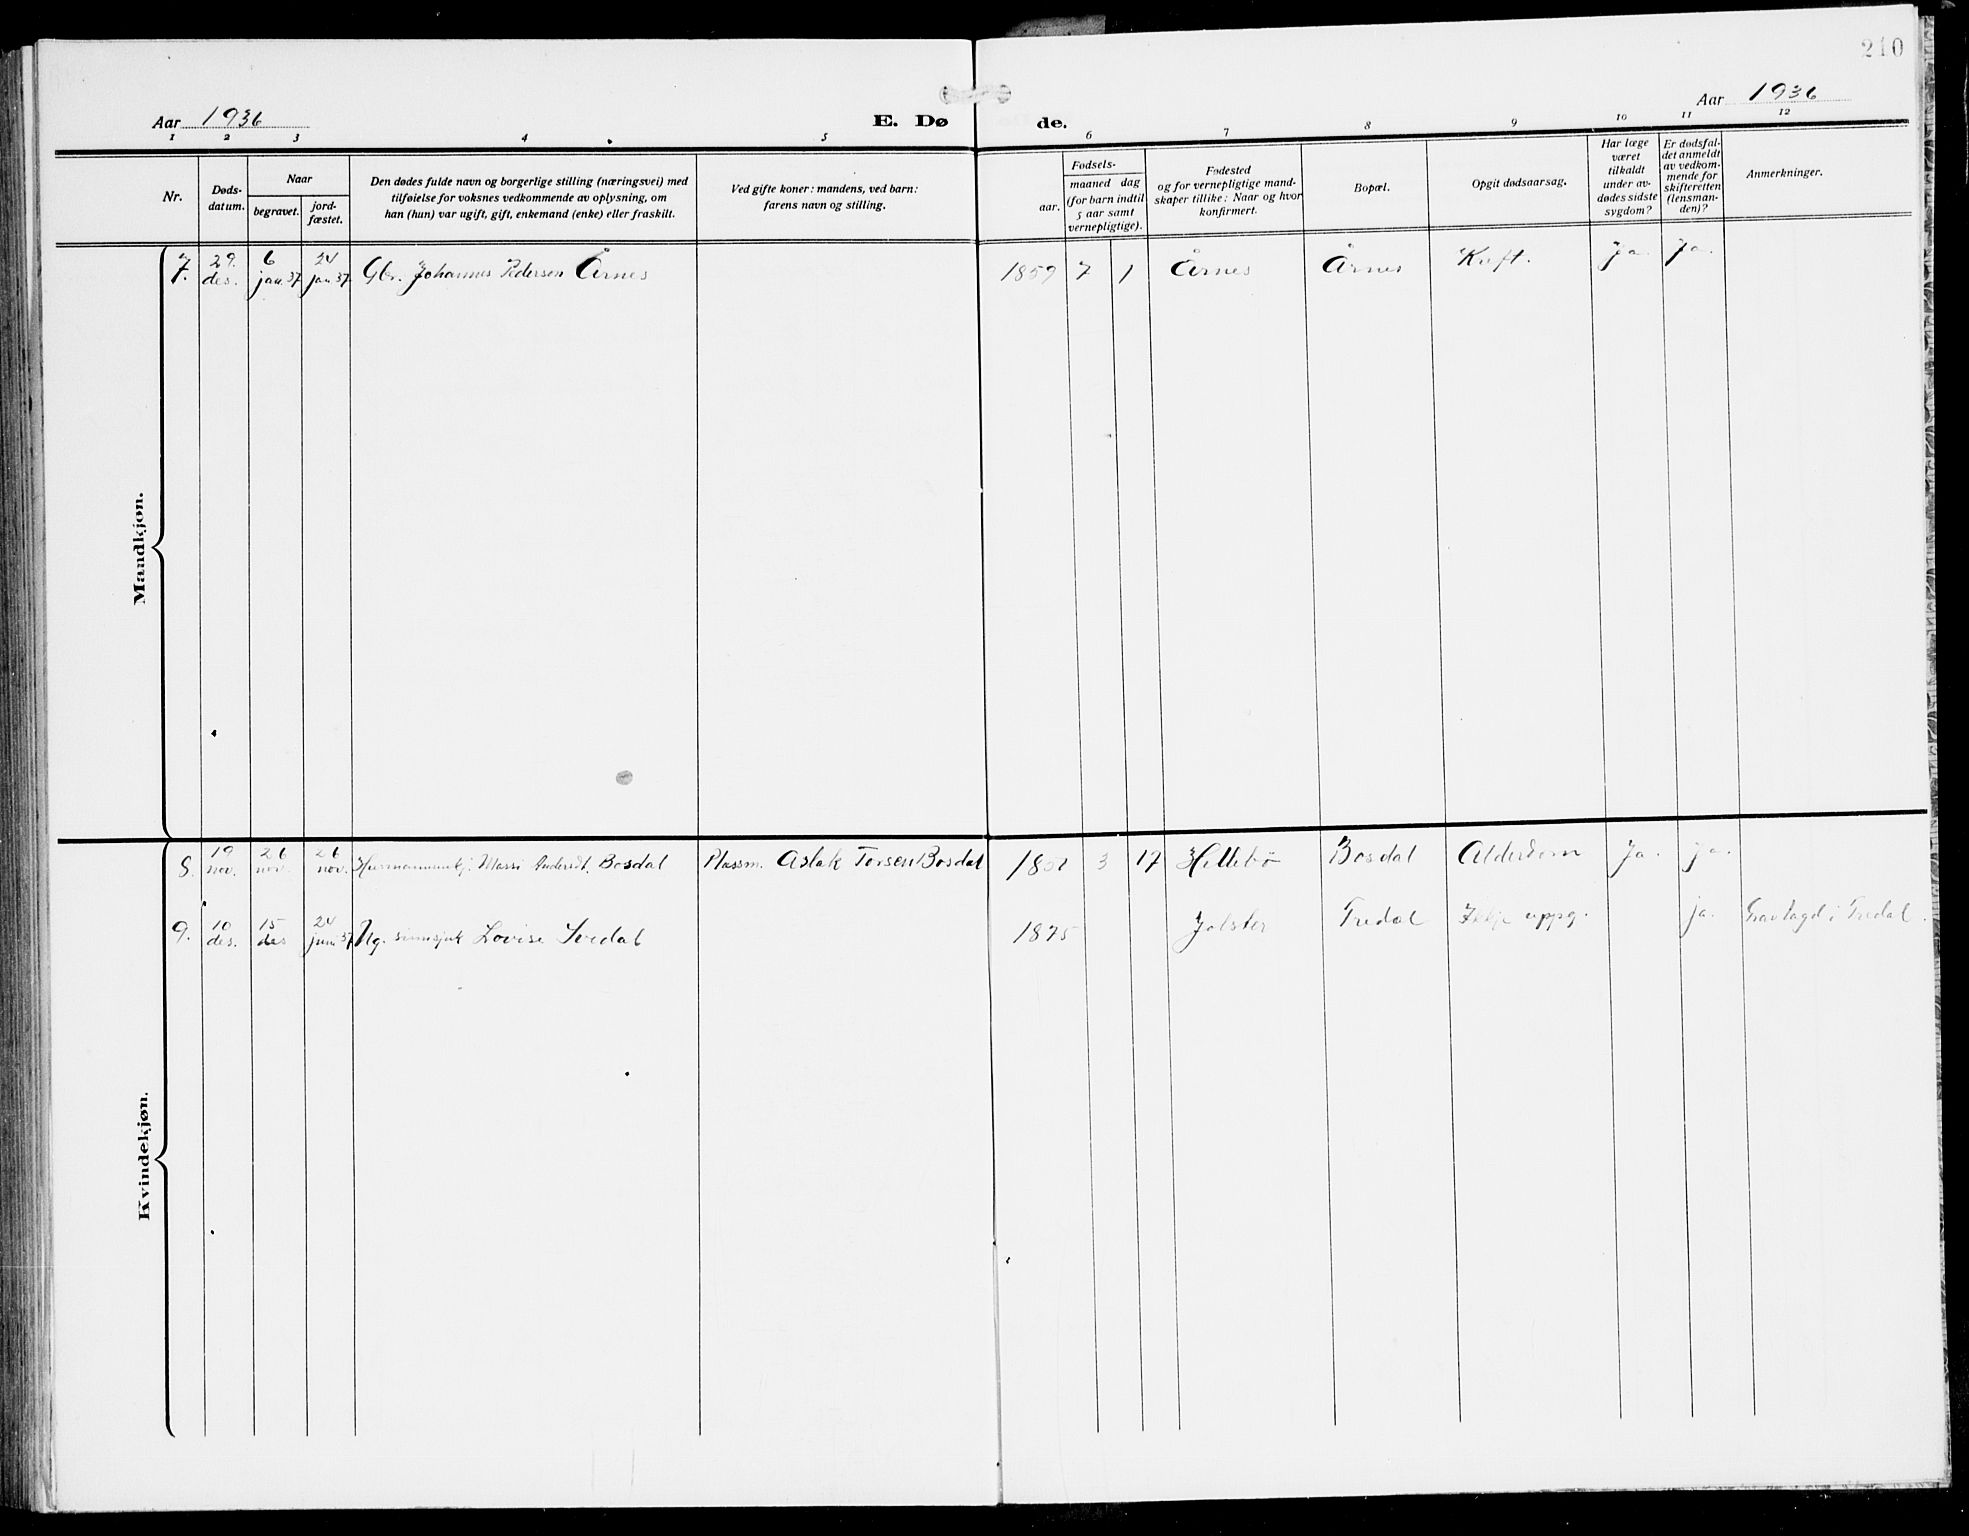 210
Aar 1936
E. Dø de.
Aar 1936
1 2 3 4 5 6 7 8 9 10 11 12
Nr.
Døds-
datum.
Naar
begravet.
jord-
fæstet.
Den dødes fulde navn og borgerlige stilling (næringsvei) med
tilføielse for voksnes vedkommende av oplysning, om
han (hun) var ugift, gift, enkemand (enke) eller fraskilt.
Ved gifte koner: mandens, ved barn:
farens navn og stilling.
Fødsels-
aar.
maaned dag
(for barn indtil
5 aar samt
vernepligtige).
Fødested
og for vernepligtige mand-
skaper tillike: Naar og hvor
konfirmert.
Bopæl.
Opgit dødsaarsag.
Har læge
været
tilkaldt
under av-
dødes sidste
sygdom?
Er dødsfal-
det anmeldt
av vedkom-
mende for
skifteretten
(lensman-
den)?
Anmerkninger.
Mandkjøn.
7. 29. des. 6 jan. 37 24 jan. 37 Gbr. Johannes Pedersen Årnes 1859 7 1 Årnes Årnes Kreft. Ja. Ja.
Kvindekjøn.
8. 19 nov. 26 nov. 26 nov. Anders dt. Bosdal Plassm. Aslak Torsen Bosdal 1851 3 17 Hellebø Bosdal Alderdom Ja. Ja.
9. 10 des. 15 des 24 37 Ug. sinnsjuk Lovise Tredal 1875 Jølster Tredal Ikkje uppg. ja. Gravlagd i Tredal.